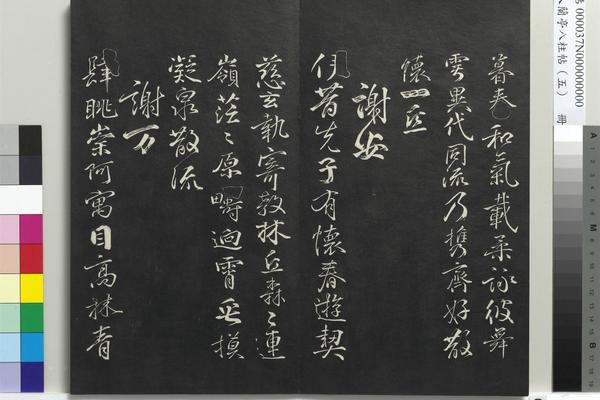 暮春和氣載柔詠彼舞
雩異代同流乃携齊好散
懷一丘
謝安
伊昔先子有懷春遊契
慈玄執寄敖林丘森〻連
嶺茫〻原疇迥霄垂摸
凝泉散流
謝万
肆眺崇阿寓目高林青
000037N000000000 冊
蘭亭八柱帖（五）